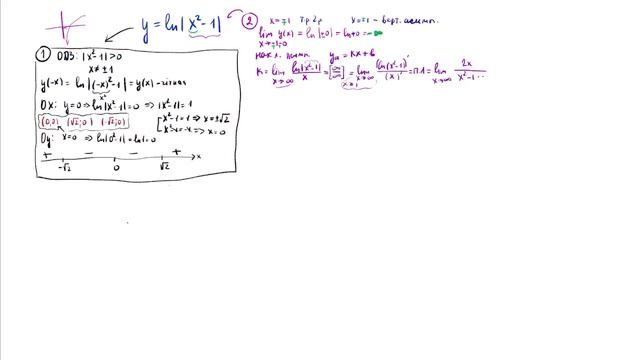 y = ln|x²-1|
① ОДЗ: |x²-1|>0
x≠±1
y(-x) = ln|(-x)²-1| = y(x) - чётная
x²
OX: y=0 ⇒ ln|x²-1|=0 ⇒ |x²-1|=1
[x²-1=1 ⇒ x=±√2
(0;0) (√2;0) (-√2;0)
x²-1=-1 ⇒ x=0
Oy: x=0 ⇒ ln|0²-1|=ln1=0
+ - - +
-√2 0 √2 x
② x=∓1 т.р. 2р. x=±1 - верт. асимп.
lim y(x) = ln|±0| = ln+0 = -∞
x→∓1±0
накл. асимп. yн = kx+b
k = lim ln|x²-1| / x = [∞/∞] = lim (ln(x²-1))' / (x)' = п.Л = lim 2x / x²-1 ...
x→∞ x→±∞ x→∞ x→∞